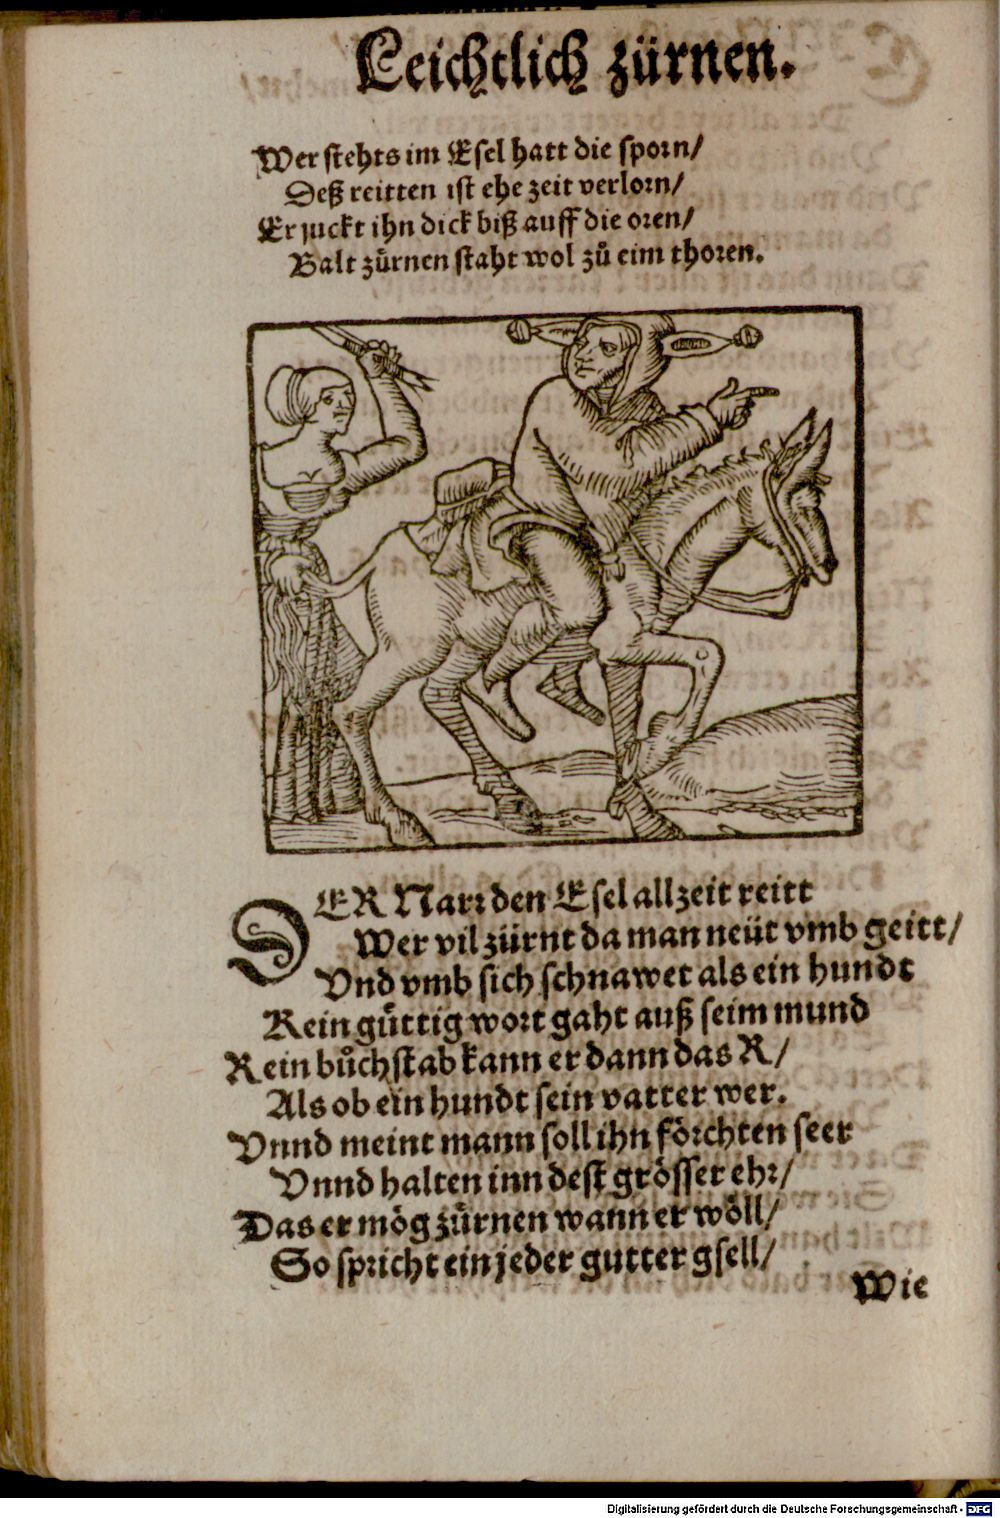 Leichtlich zürnen.
Wer stehts im Esel hatt die sporn/
Deß reitten ist ehe zeit verlorn/
Er juckt ihn dick biß auff die oren/
Balt zürnen staht wol zů eim thoren.
DER Narr den Esel allzeit reitt
Wer vil zürnt da man neüt vmb geitt/
Vnd vmb sich schnawet als ein hundt
Kein gůttig wort gaht auß seim mund
Kein bůchstab kann er dann das R/
Als ob ein hundt sein vatter wer.
Vnnd meint mann soll ihn förchten seer
Vnnd halten inn dest grösser ehr/
Das er mög zürnen wann er wöll/
So spricht ein jeder gutter gsell/
Wie
Digitalisierung gefördert durch die Deutsche Forschungsgemeinschaft - DFG